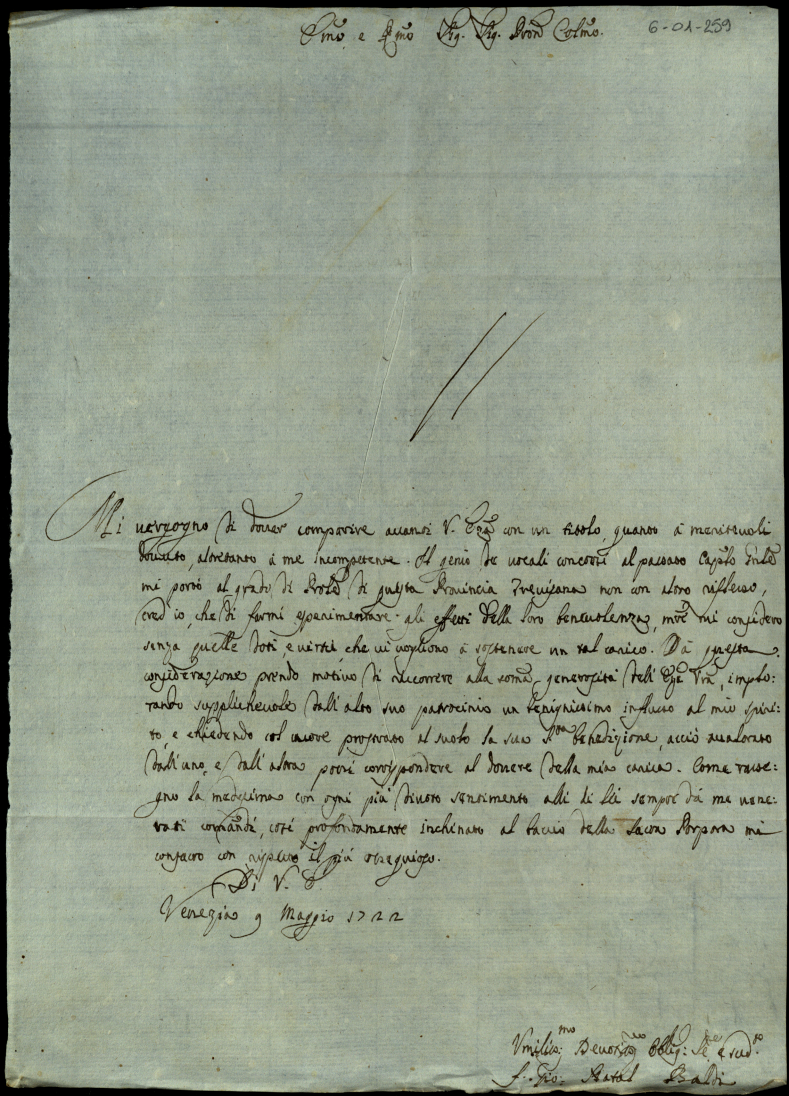 Emo e Rmo Sig. Sig. Pron Colmo.
6-01-259
Mi uergogno di douer comparire auanti V. Eza con un titolo, quanto à meriteuoli
douuto, altretanto à me incompetente. Il genio de uocali concorsi al passato Capto
mi portò al grado di di questa Prouincia Treuigiana non con altro riflesso,
cred'io, che di farmi sperimentare gli effetti della loro beneuolenza, mi considero
senza quelle doti, e uirtù, che ui uogliono à sostenere un tal carico. Dà questa
considerazione prendo motiuo di ricorrere alla soma generosità dell'Eza Vra, implo-
rando supplicheuole dall'alto suo patrocinio un benignissimo influsso al mio spiri-
to, e chiedendo col cuore prostrato al suolo la sua Sta benedizione, acciò aualorato
dall'uno, e dall'altra possi corrispondere al douere della mia carica. Come rasse-
gno la medesima con ogni più diuoto sentimento alli di lei sempre dà me uene-
rati comandi, così profondamente inchinato al baccio della Sacra Porpora mi
consacro con rispetto il più ossequioso.
Di V. E
Venezia 9 Maggio 1722
Vmiliss:mo Deuotissmo Obblig: Se e sud.to
f. Gio: Natal Baldi